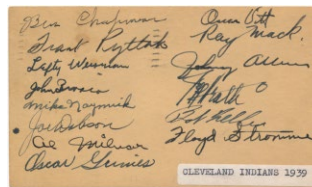 Ben Chapman
Frank Pytlak
Lefty Weisman
John Broaca
Mike Naymick
Joe Dobson
Al Milnar
Oscar Grimes
Ray Mack
Johnny Allen
Bob Feller
Floyd Stromme
CLEVELAND INDIANS 1939